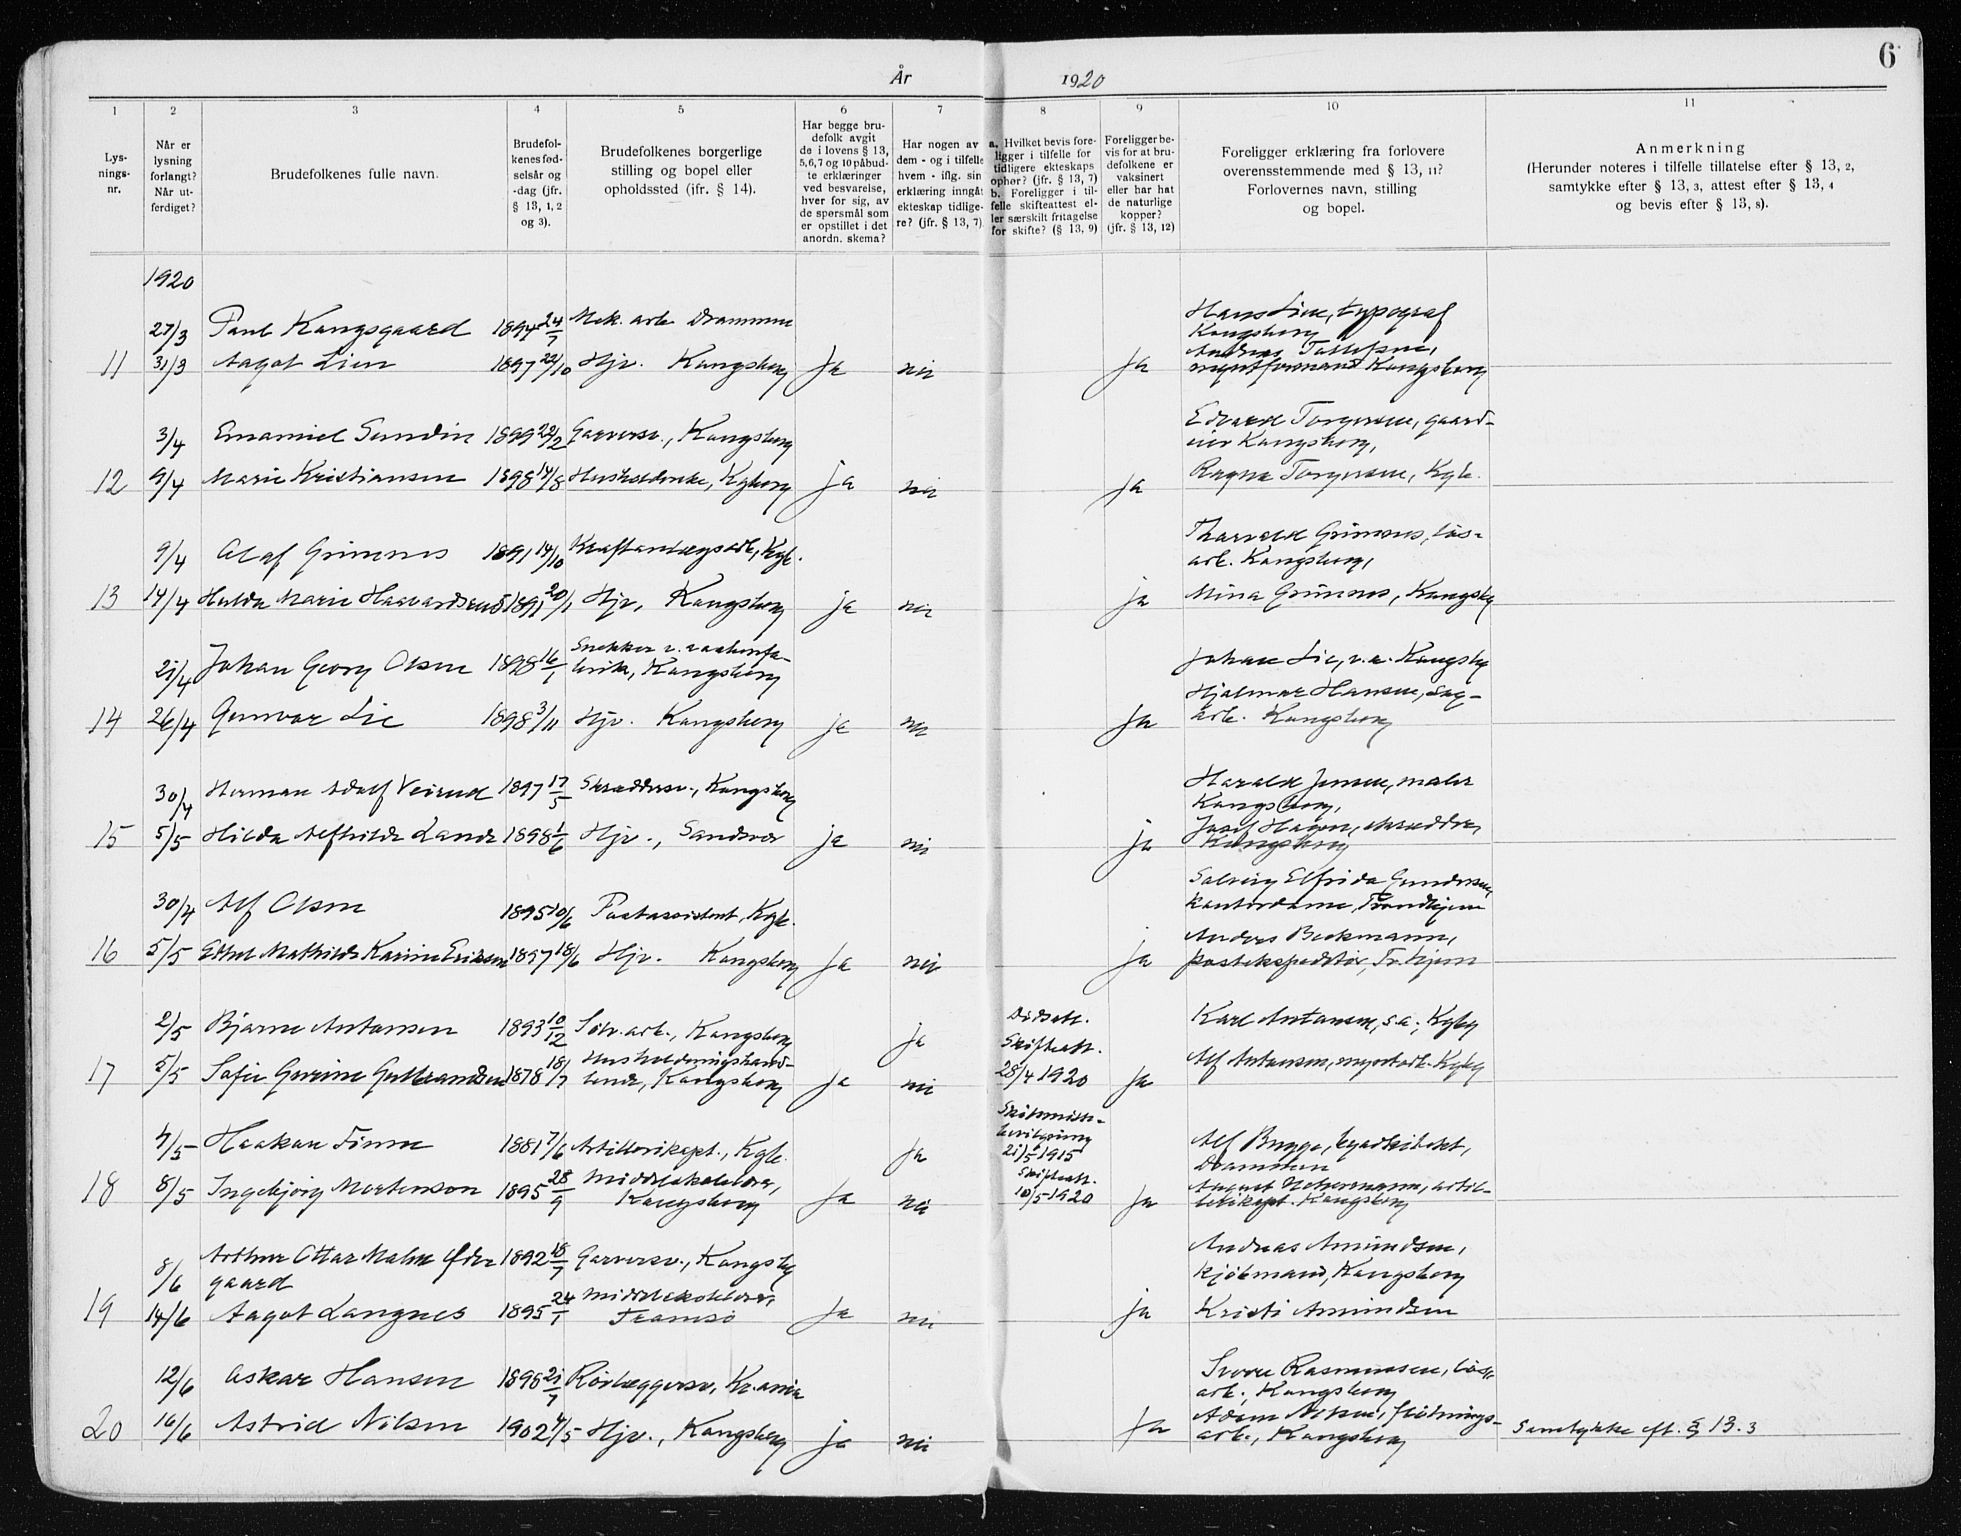 År 1920
6
1
2
3
4
5
6
7
8
9
10
11
Lys-
nings-
nr.
Når er
lysning
forlangt?
Når ut-
ferdiget?
Brudefolkenes fulle navn.
Brudefol-
kenes fød-
selsår og
-dag (jfr.
§ 13, 1, 2
og 3).
Brudefolkenes borgerlige
stilling og bopel eller
opholdssted (ifr. § 14).
Har begge bru-
defolk avgit
de i lovens § 13,
5,6,7 og 10 påbud-
te erklæringer
ved besvarelse,
hver for sig, av
de spørsmål som
er opstillet i det
anordn. skema?
Har nogen av
dem - og i tilfelle
hvem - iflg. sin
erklæring inngåt
ekteskap tidlige-
re? (jfr. § 13, 7)
a. Hvilket bevis fore-
ligger i tilfelle for
tidligere ekteskaps
ophør? (jfr. § 13, 7)
b. Foreligger i til-
felle skifteattest el-
ler særskilt fritagelse
for skifte? (§ 13, 9)
Foreligger be-
vis for at bru-
defolkene er
vaksinert
eller har hat
de naturlige
kopper?
(jfr. § 13, 12)
Foreligger erklæring fra forlovere
overensstemmende med § 13, 11?
Forlovernes navn, stilling
og bopel.
Anmerkning
(Herunder noteres i tilfelle tillatelse efter § 13, 2,
samtykke efter § 13, 3, attest efter § 13, 4
og bevis efter § 13, 8).
1920
27/3 Paul Kongsgaard 1894 24/7 Mek. arb Drammen
Hans Lien, typograf
Kongsberg
11 31/3 Aagot Lien 1897 22/10 Hjv. Kongsberg Ja nei Ja
Andreas Tollefsen,
myntformand Kongsberg
3/4 Emanuel Sundin 1899 22/2 Garversv., Kongsberg
Edvard Torgersen, gaard-
eier Kongsberg,
12 9/4 Marie Kristiansen 1898 14/8 Husholderske, Kgberg ja nei ja Ragna Torgersen, Kgb.
9/4 Olaf Grimnes 1891 14/10 Kraftanlægsarb, Kgb.
Thorvald Grimnes, løs-
arb. Kongsberg,
13 14/4 Hulda Marie Haavardsrud 1891 20/1 Hjv, Kongsberg ja nei ja Mina Grimnes, Kongsbg
21/4 Johan Georg Olsen 1898 16/1 Snekker v. vaabenfa-
brikk, Kongsberg
Johan Lie, v.a. Kongsbg
Hjalmar Hansen, sag-
14 26/4 Gunvor Lie 1898 3/11 Hjv. Kongsberg ja nei Ja arb. Kongsberg
30/4 Herman Adolf Veirud 1897 17/5 Skræddersv., Kongsberg
Harald Jensen, maler
Kongsberg,
15 5/5 Hilda Alfhilde Lande 1898 1/6 Hjv., Sandsvær ja nei ja
Josef Hagen, skrædder,
Kongsberg
30/4 Alf Olsen 1895 10/6 Postassistent, Kgb.
Solveig Elfrida Gundersen,
kontordame, Trondhjem
16 5/5 Ethel Mathilde Karine Eriksen 1897 18/6 Hjv. Kongsberg Ja nei ja
Anders Beckmann,
postekspeditør, Tr.hjem
2/5 Bjarne Antonsen 1893 10/12 Sølv. arb., Kongsberg ja
Dødsatt.
Karl Antonsen, s.a., Kgbg
17 5/5 Sofie Gurine Gulbrandsen 1878 18/7 Husholdningshand-
lende, Kongsberg ja nei
Skifteatt.
28/4 1920 Ja
Alf Antonsen, myntarb. Kgbg
4/5 Haakon Finne 1881 7/6 Artillerikapt., Kgb. Ja
Skilsmisse-
bevilgning
21/5 1915
Alf Bugge, byarkitekt,
Drammen
18 8/5 Ingebjørg Mortenson 1895 28/9 Middelskolelærer,
Kongsberg Ja nei
Skifteatt.
10/5 1920 Ja
August artil-
lerikapt. Kongsberg
8/6 Arthur Ottar Malm Øde-
gaard 1892 18/7 Garversv., Kongsbg
Andreas Amundsen,
kjøbmand, Kongsberg
19 14/6 Aagot Langnes 1895 24/1 Middelskolelærer,
Tromsø Ja nei ja Kristi Amundsen
12/6 Oskar Hansen 1898 21/7 Rørlæggersv, Kr.ania
Sverre Rasmussen, løs-
arb. Kongsberg
20 16/6 Astrid Nilsen 1902 4/5 Hjv., Kongsberg ja nei Ja
Adam Nilsen, fløtnings-
arb., Kongsberg
Samtykke eft. § 13.3